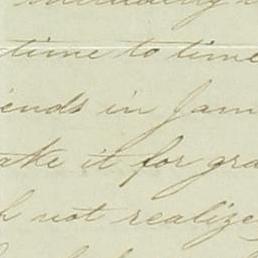 time to time
ends in Jam
ake it for gra
h not realize